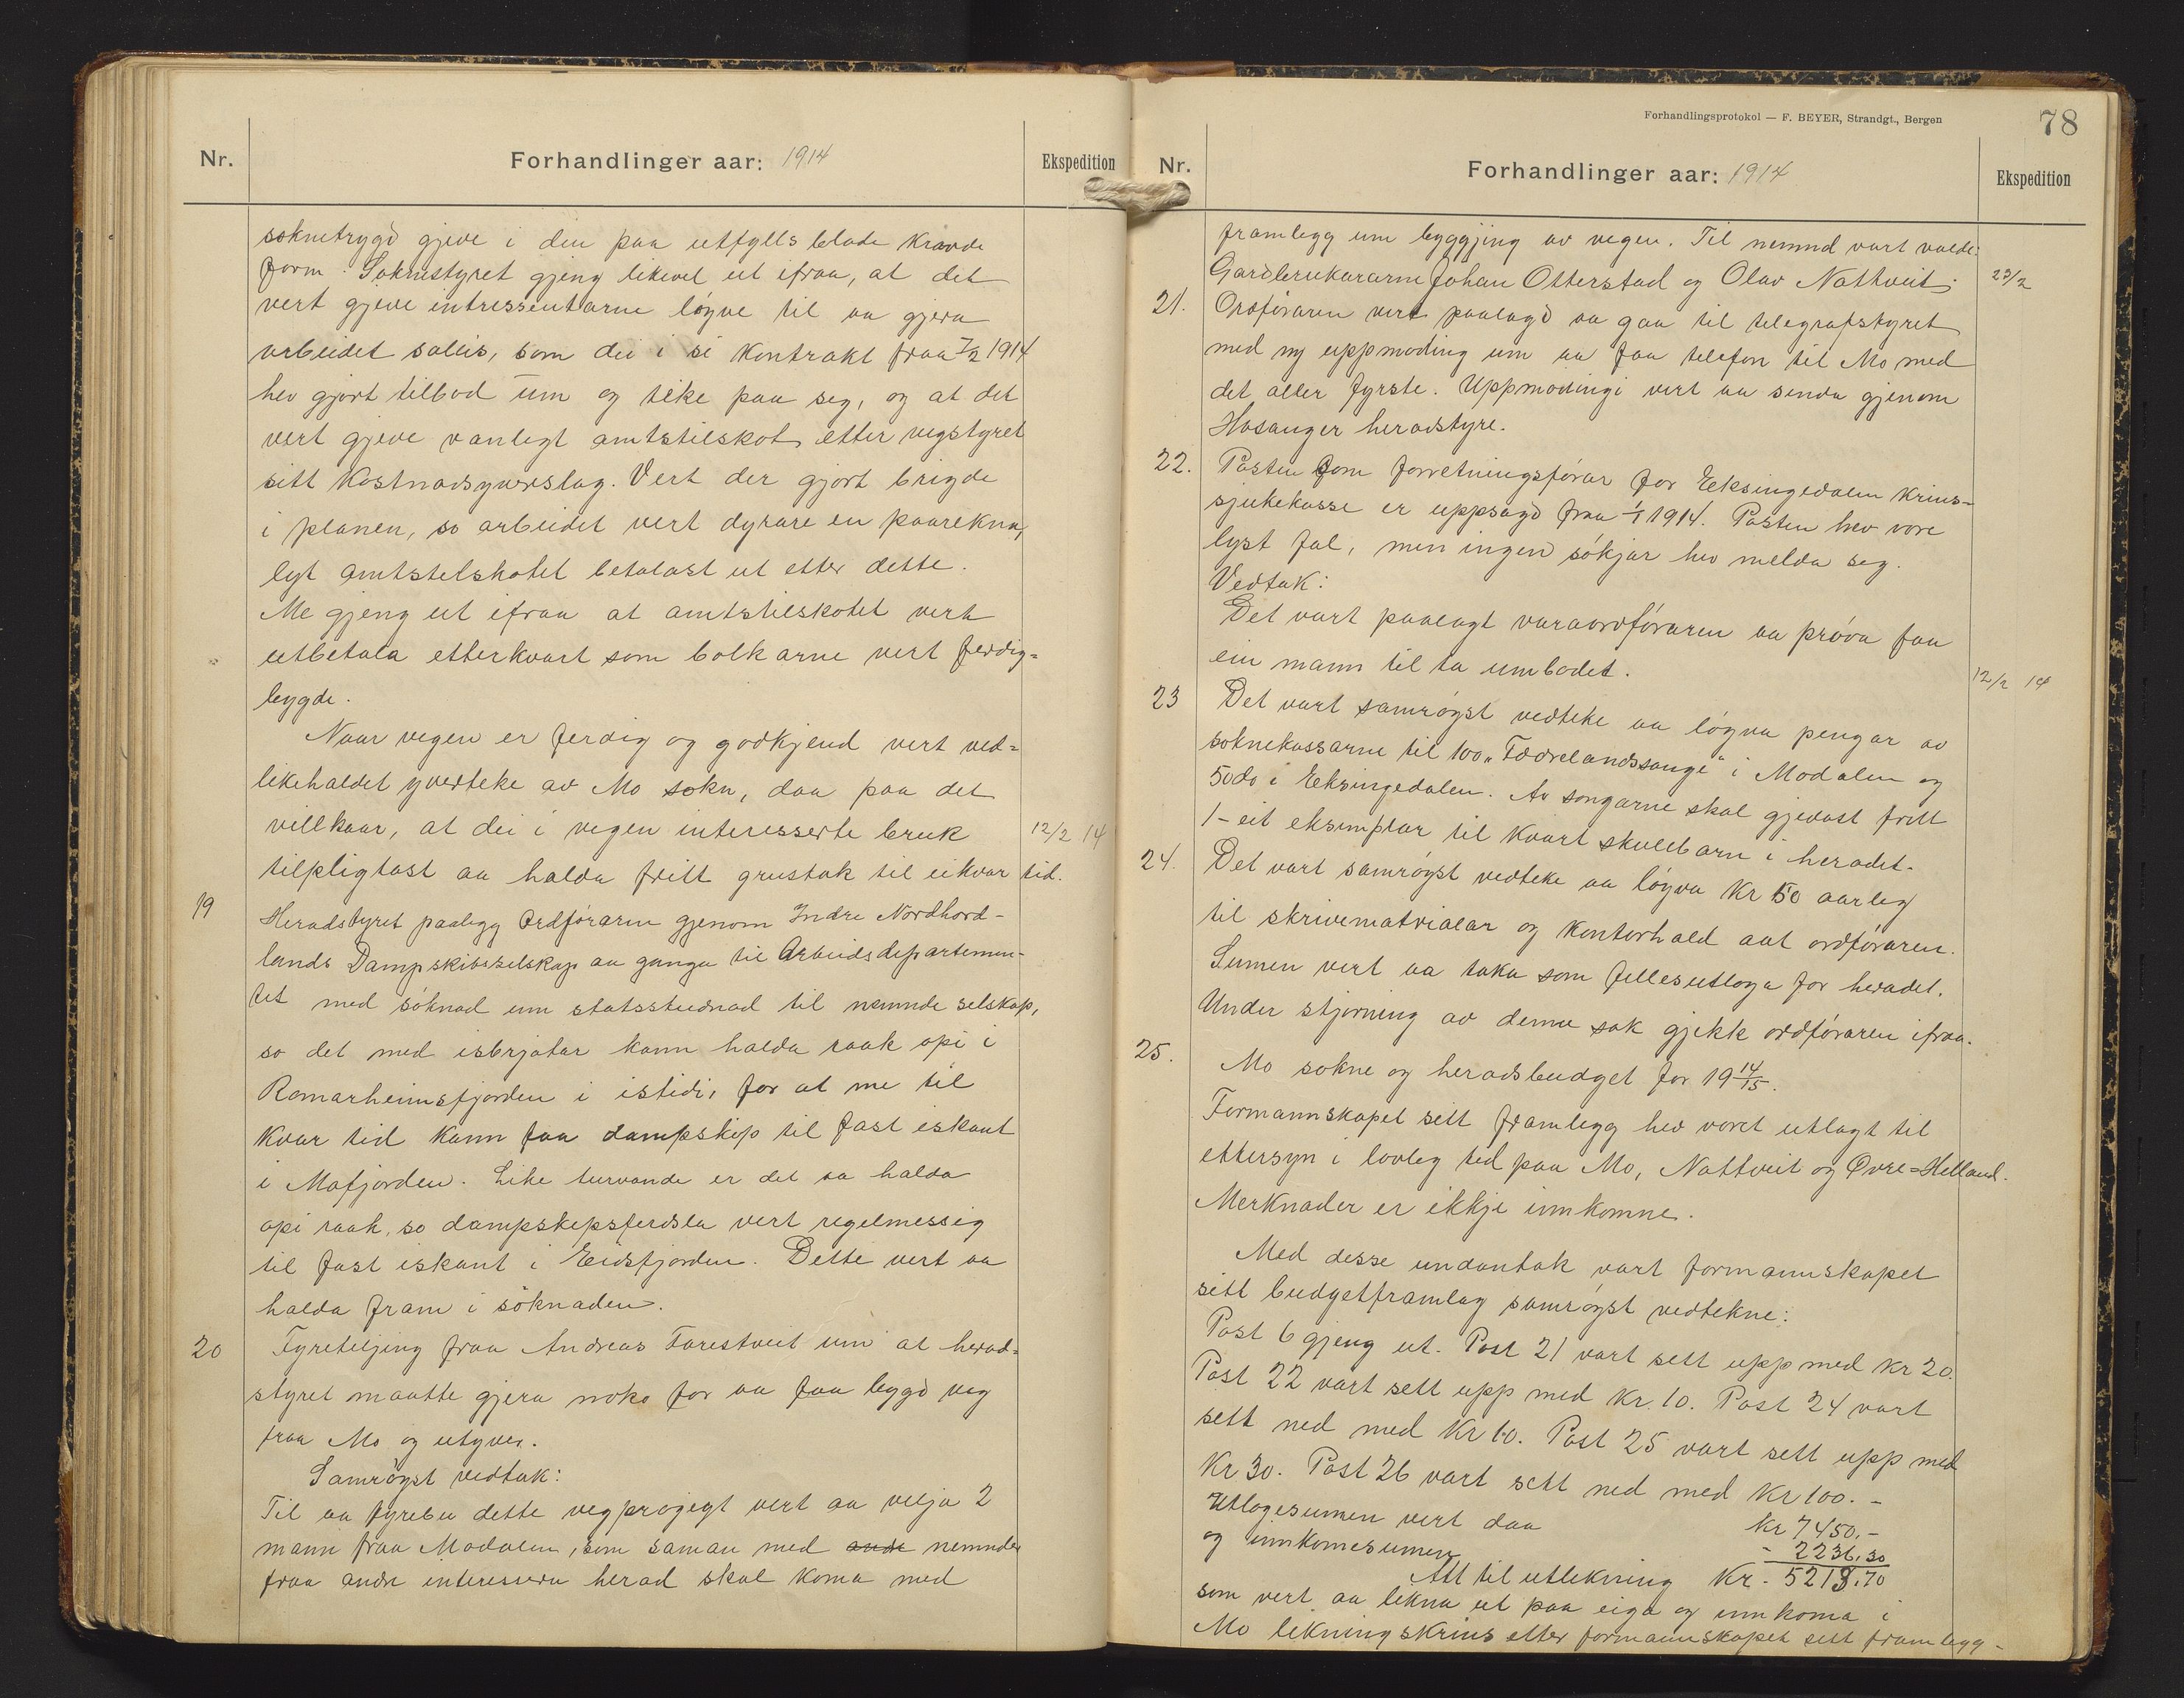 Nr.
Forhandlinger aar: 1914
Ekspedition
soknetrygd gjeve i den paa utfylls blade kravde
form. Soknestyret gjeng likevel ut ifraa, at det
vert gjeve intressentarne løyve til aa gjera
arbeidet soleis, som dei i si kontrakt fraa 7/2 1914
hev gjort tilbod um og teke paa seg, og at det
vert gjeve vanlegt amtstilskot etter vegstyret
sitt kostnadsyverslag. Vert der gjort brigde
i planen, so arbeidet vert dyrare en paarekna,
lyt amtstelskotet betalast ut etter dette.
Me gjeng ut ifraa at amtstilskotet vert
utbetala etterkvart som bolkarne vert ferdig=
bygde.
Naar vegen er ferdig og godkjend vert ved=
likehaldet yverteke av Mo sokn, daa paa det
villkaar, at dei i vegen interesserte bruk
12/2 14
tilpligtast aa halda fritt grustak til eikvar tid.
19
Heradstyret paalegg Ordføraren gjenom Indre Nordhord-
lands Dampskibsselskap aa ganga til Arbeidsdepartemen-
tet med søknad um statsstudnad til nemnde selskap,
so det med isbrjotar kann halda raak opi i
Romarheimsfjorden i istidi, for at me til
kvar tid kann faa dampskip til fast iskant
i Mofjorden. Like turvande er det aa halda
opi raak, so dampskepsferdsla vert regelmessig
til fast iskant i Eidsfjorden. Dette vert aa
halda fram i søknaden.
20
Fyreteljing fraa Andreas Farestveit um at herad=
styret maatte gjera noko for aa faa bygd veg
fraa Mo og utyver.
Samrøyst vedtak:
Til aa fyrebu dette vegprojegt vert aa velja 2
mann fraa Modalen, som saman med andre nemnder
fraa andre interessera herad skal koma med
Forhandlingsprotokol — F. BEYER, Strandgt., Bergen
78
Nr.
Forhandlinger aar: 1914
Ekspedition
framlegg um byggjing av vegen. Til nemnd vart valde:
Gardbrukararne Johan Otterstad og Olav Nathveit.
23/2
21.
Ordføraren vert paalagd aa gaa til telegrafstyret
med ny uppmoding um aa faa telefon til Mo med
det aller fyrste. Uppmodingi vert aa senda gjenom
Hosanger heradstyre.
22.
Posten som forretningsførar for Eeksingedalen krins-
sjukekasse er uppsagd fraa 1/1 1914. Posten hev vore
lyst fal, men ingen søkjar hev melda seg.
Vedtak:
Det vart paalagt varaordføraren aa prøva faa
ein mann til ta umbodet.
12/2 14
23
Det vart samrøyst vedteke aa løyva pengar av
soknekassarne til 100 „Fædrelandssange" i Modalen og
50 do i Eeksingedalen. Av songarne skal gjevast fritt
1 - eit eksemplar til kvart skulebarn i heradet.
24.
Det vart samrøyst vedteke aa løyva kr 50 aarleg
til skrivematrialar og kontorhald aat ordføraren.
Sumen vert aa taka som fellesutloga for heradet.
Under stjorning av denne sak gjekk ordføraren ifraa.
25.
Mo sokne og heradsbudget for 19 14/15.
Formannskapet sitt framlegg hev voret utlagt til
ettersyn i lovleg tid paa Mo, Nattveit og Øvre-Helland.
Merknader er ikkje innkomne.
Med desse undantak vart formannskapet
sitt budgetframlag samrøyst vedtekne:
Post 6 gjeng ut. Post 21 vart sett upp med kr 20.
Post 22 vart sett upp med kr. 10. Post 24 vart
sett ned med kr 60. Post 25 vart sett upp med
kr 30. Post 26 vart sett ned med kr 100. -
Utlogesumen vert daa kr 7450. -
og innkomesumen - 2236.30
Att til utlikning kr. 5213.70
som vert aa likna ut paa eiga og innkoma i
Mo likningskrins etter formannskapet sitt framlegg -